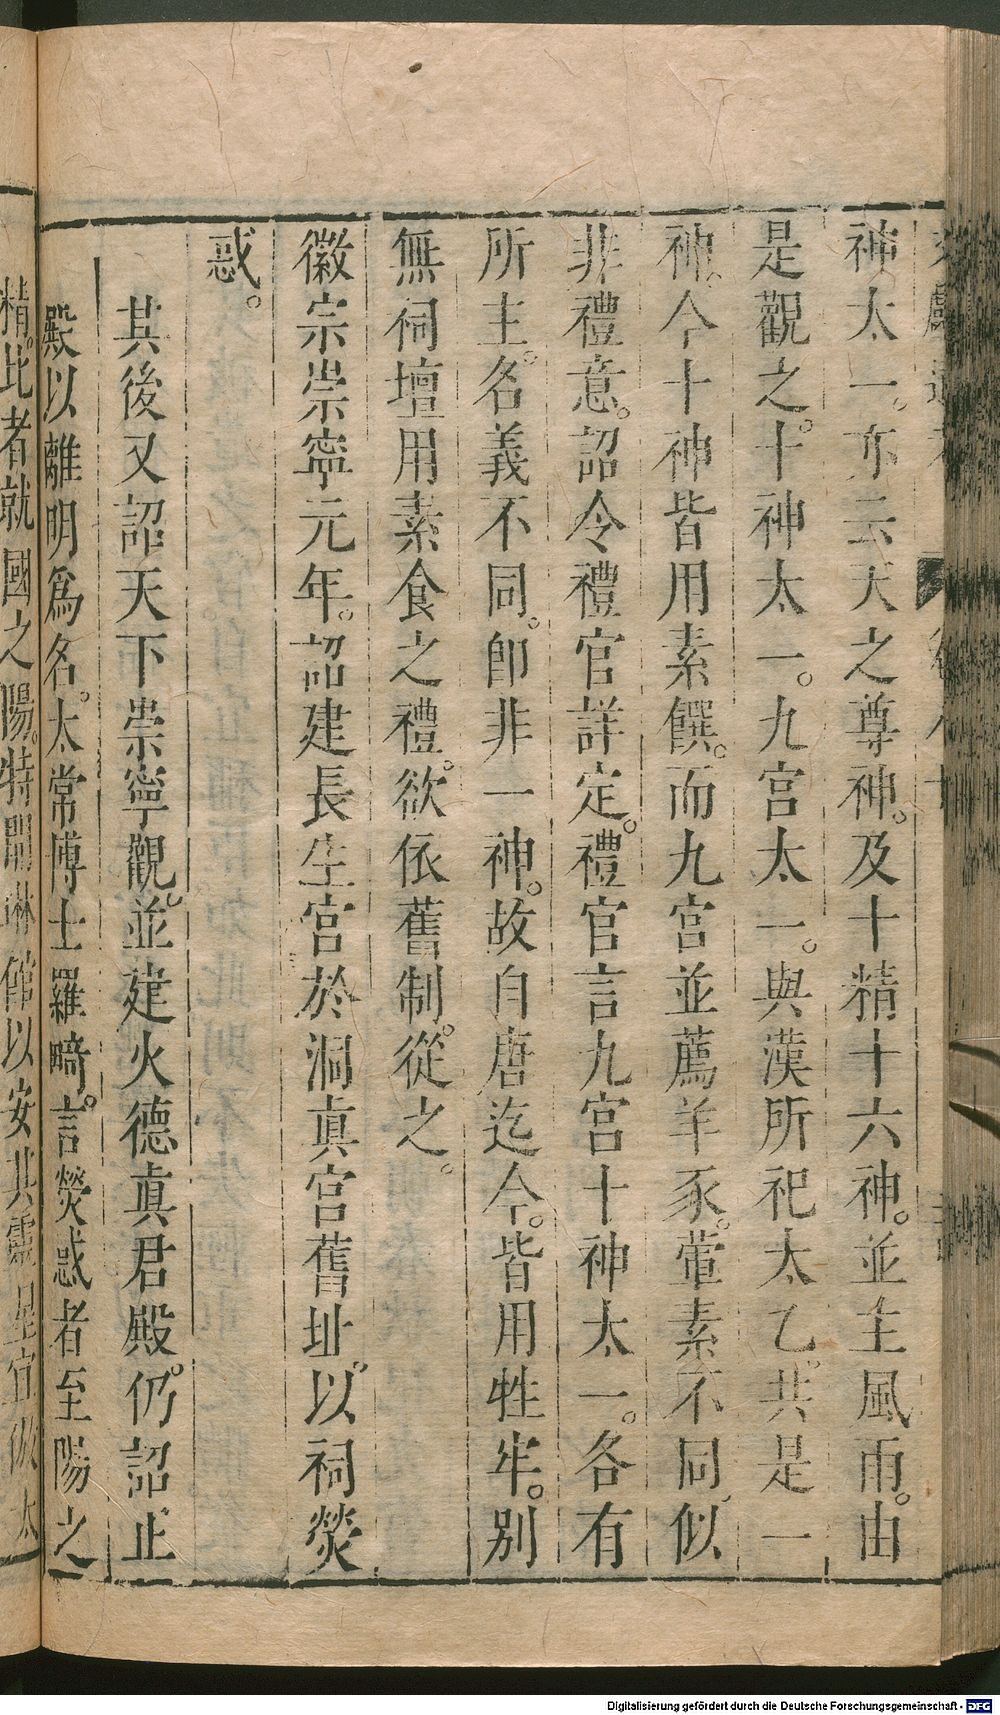 神太一。亦云天之尊神。及十精十六神。並主風雨。由
是觀之。十神太一。九宮太一。與漢所祀太乙。共是一
神。今十神皆用素饌。而九宮並薦羊豕。葷素不同。似
非禮意。詔令禮官詳定。禮官言九宮十神太一。各有
所主。名義不同。卽非一神。故自唐迄今。皆用牲牢。別
無祠壇用素食之禮。欲依舊制。從之。
徽宗崇寧元年。詔建長生宮於洞眞宮舊址。以祠熒
惑。
其後又詔天下崇寧觀。並建火德眞君殿。仍詔正
殿以離明爲名。太常博士羅畸。言熒惑者至陽之
精。此者就國之陽。特開琳館以妥其靈。星宜倣太
Digitalisierung gefördert durch die Deutsche Forschungsgemeinschaft - DFG